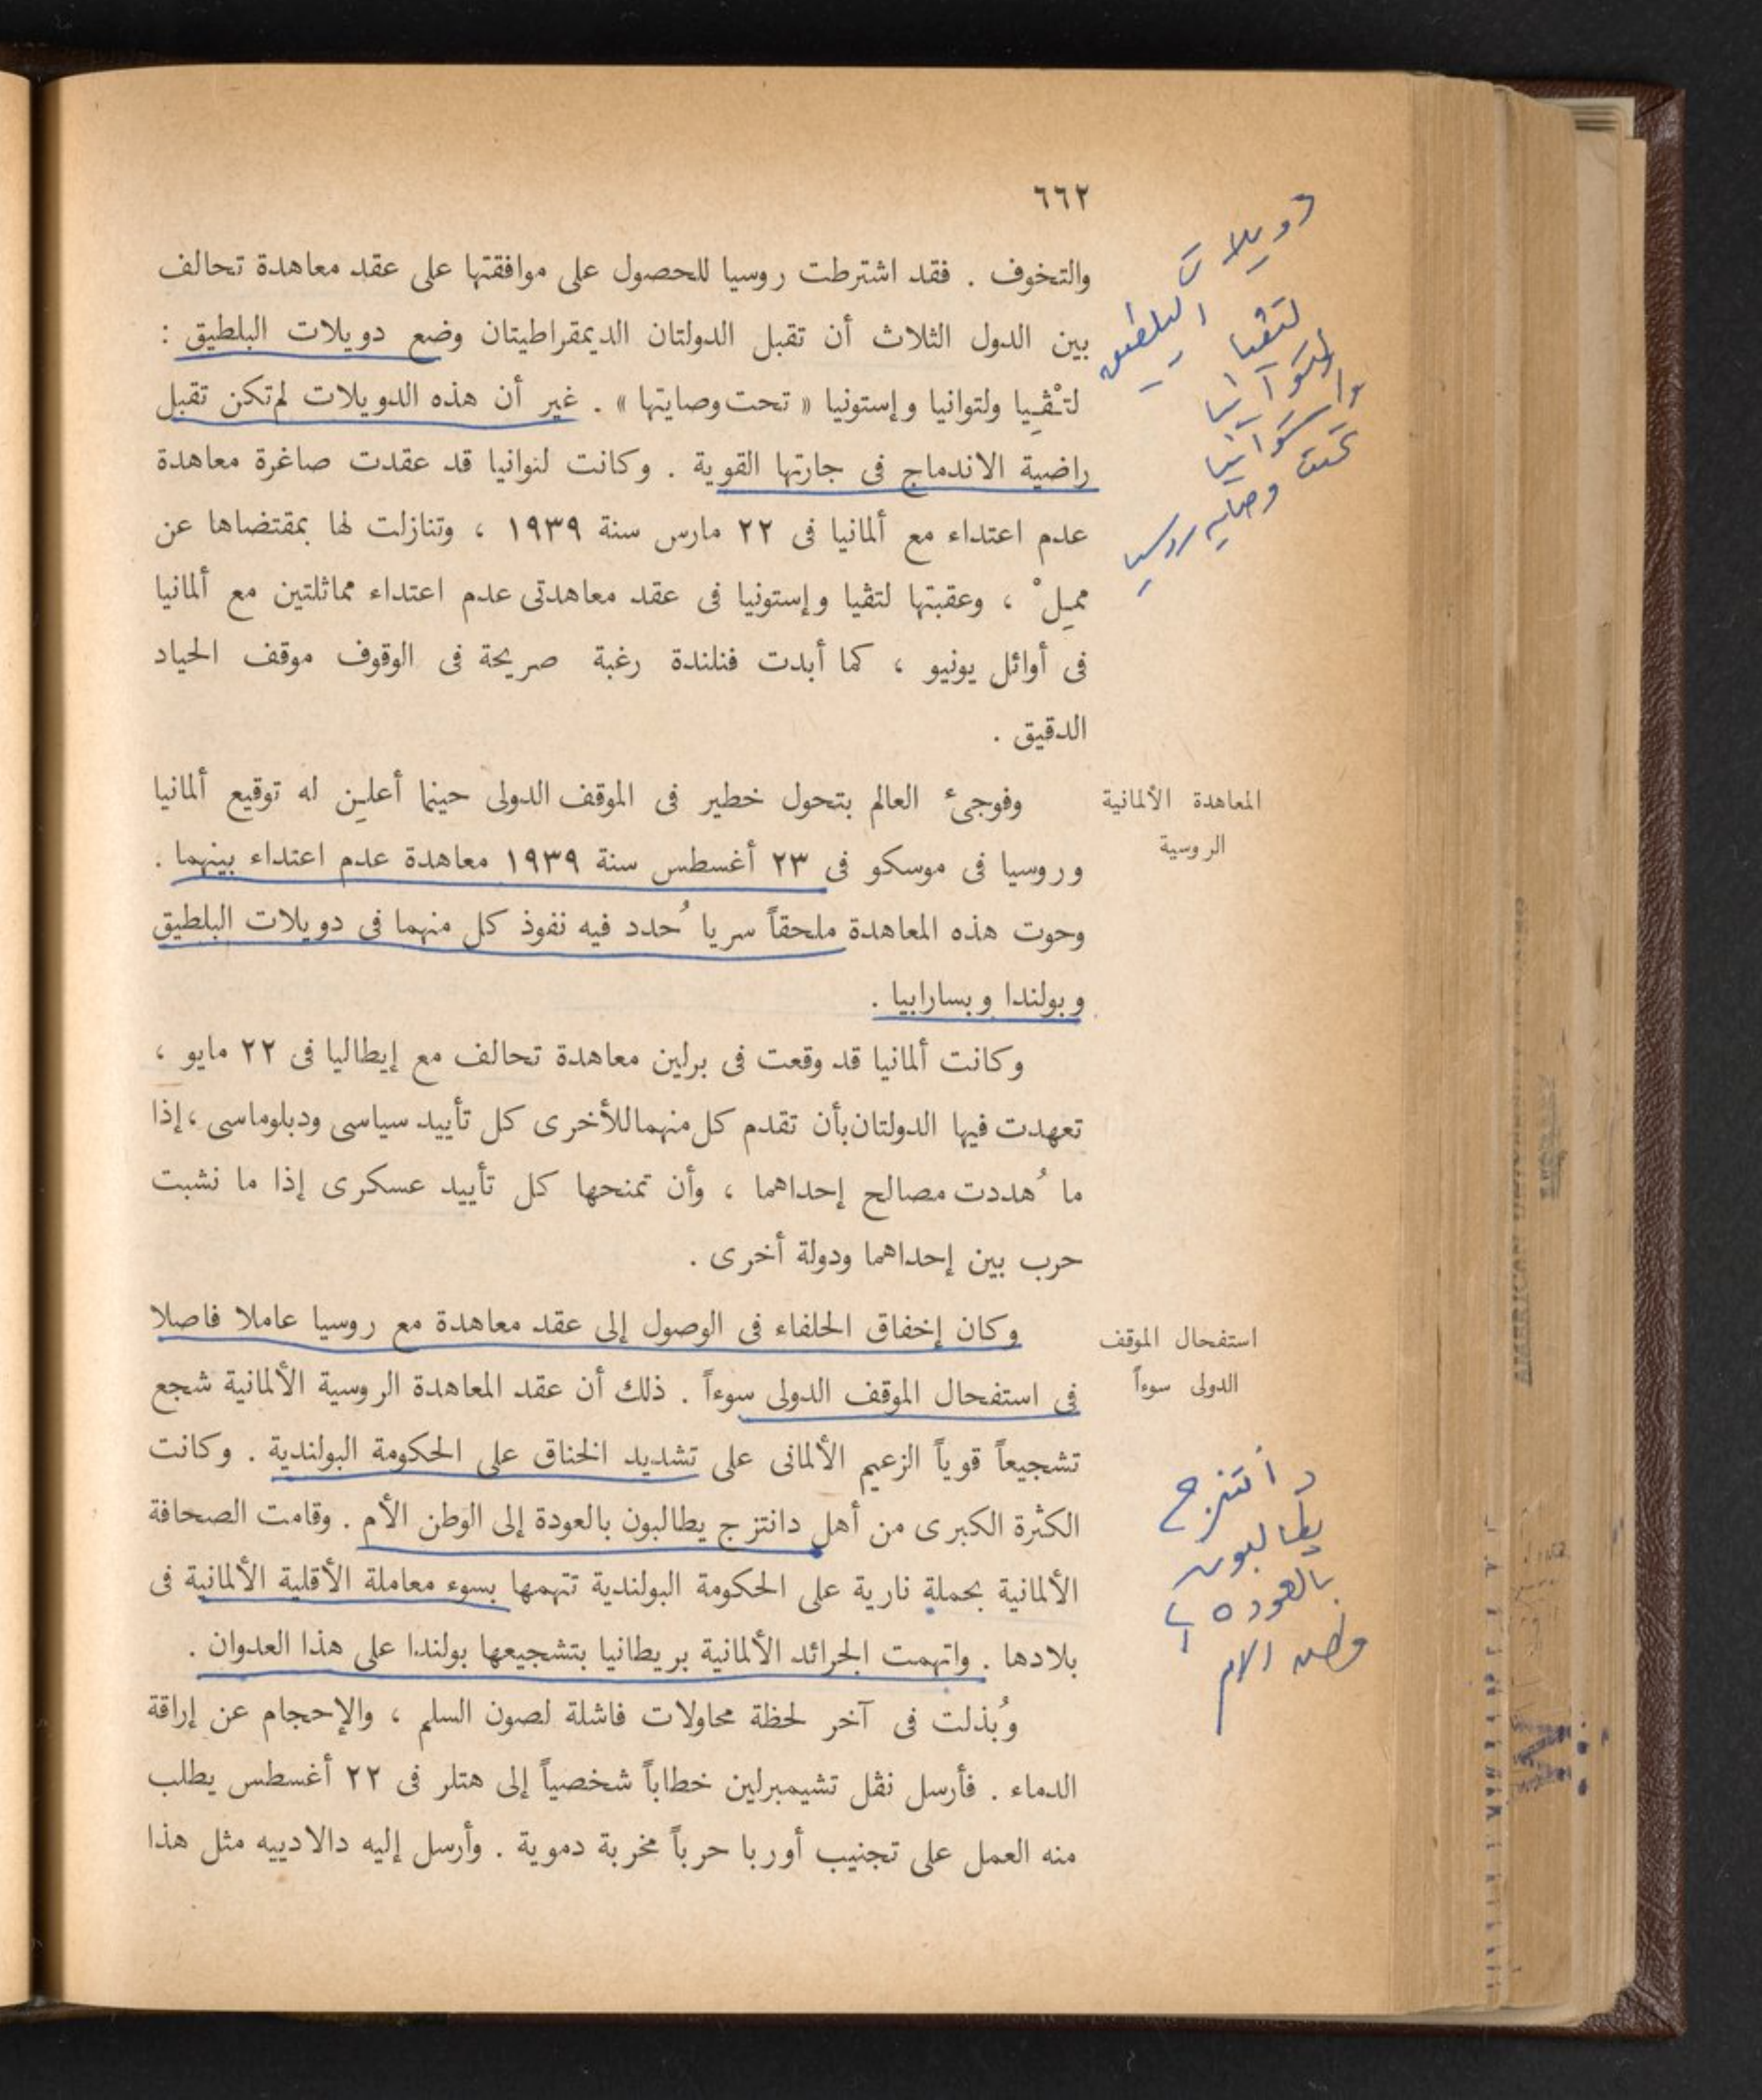 ٦٦٢
والتخوف . فقد اشترطت روسيا للحصول على موافقتها على عقد معاهدة تحالف
بين الدول الثلاث أن تقبل الدولتان الديمقراطيتان وضع دويلات البلطيق :
لتْڤِيا ولتوانيا وإستونيا « تحت وصايتها » . غير أن هذه الدويلات لم تكن تقبل
راضية الاندماج فى جارتها القوية . وكانت لتوانيا قد عقدت صاغرة معاهدة
عدم اعتداء مع ألمانيا فى ٢٢ مارس سنة ١٩٣٩ ، وتنازلت لها بمقتضاها عن
ممِلْ ، وعقبتها لتڤيا وإستونيا فى عقد معاهدتى عدم اعتداء مماثلتين مع ألمانيا
فى أوائل يونيو ، كما أبدت فنلندة رغبة صريحة فى الوقوف موقف الحياد
الدقيق .
دويلات
البلطيق
لتڤيا
تحت
وصايه روسيا
المعاهدة الألمانية
الروسية
وفوجىء العالم بتحول خطير فى الموقف الدولى حينما أعلِن له توقيع ألمانيا
وروسيا فى موسكو فى ٢٣ أغسطس سنة ١٩٣٩ معاهدة عدم اعتداء بينهما .
وحوت هذه المعاهدة ملحقاً سريا حُدد فيه نفوذ كل منهما فى دويلات البلطيق
وبولندا وبسارابيا .
وكانت ألمانيا قد وقعت فى برلين معاهدة تحالف مع إيطاليا فى ٢٢ مايو ،
تعهدت فيها الدولتان بأن تقدم كل منهما للأخرى كل تأييد سياسى ودبلوماسى ، إذا
ما هُددت مصالح إحداهما ، وأن تمنحها كل تأييد عسكرى إذا ما نشبت
حرب بين إحداهما ودولة أخرى .
استفحال الموقف
الدولى سوءاً
وكان إخفاق الحلفاء فى الوصول إلى عقد معاهدة مع روسيا عاملا فاصلا
فى استفحال الموقف الدولى سوءاً . ذلك أن عقد المعاهدة الروسية الألمانية شجع
تشجيعاً قوياً الزعيم الألمانى على تشديد الخناق على الحكومة البولندية . وكانت
الكثرة الكبرى من أهل دانتزج يطالبون بالعودة إلى الوطن الأم . وقامت الصحافة
الألمانية بحملة نارية على الحكومة البولندية تتهمها بسوء معاملة الأقلية الألمانية فى
بلادها . واتهمت الجرائد الألمانية بريطانيا بتشجيعها بولندا على هذا العدوان .
دانتزج
يطالبون
بالعوده
وطن الام
وبُذلت فى آخر لحظة محاولات فاشلة لصون السلم ، والإحجام عن إراقة
الدماء . فأرسل نڤل تشيمبرلين خطاباً شخصياً إلى هتلر فى ٢٢ أغسطس يطلب
منه العمل على تجنيب أوربا حرباً مخربة دموية . وأرسل إليه دالادييه مثل هذا